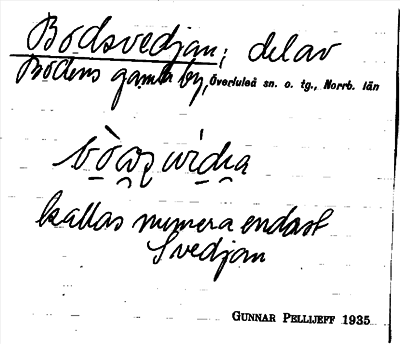 Bodsvedjan; del av
Bodens gamla by, Överluleå sn. o. tg., Norrb. län
kallas numera endast
Svedjan
GUNNAR PELLIJEFF 1935